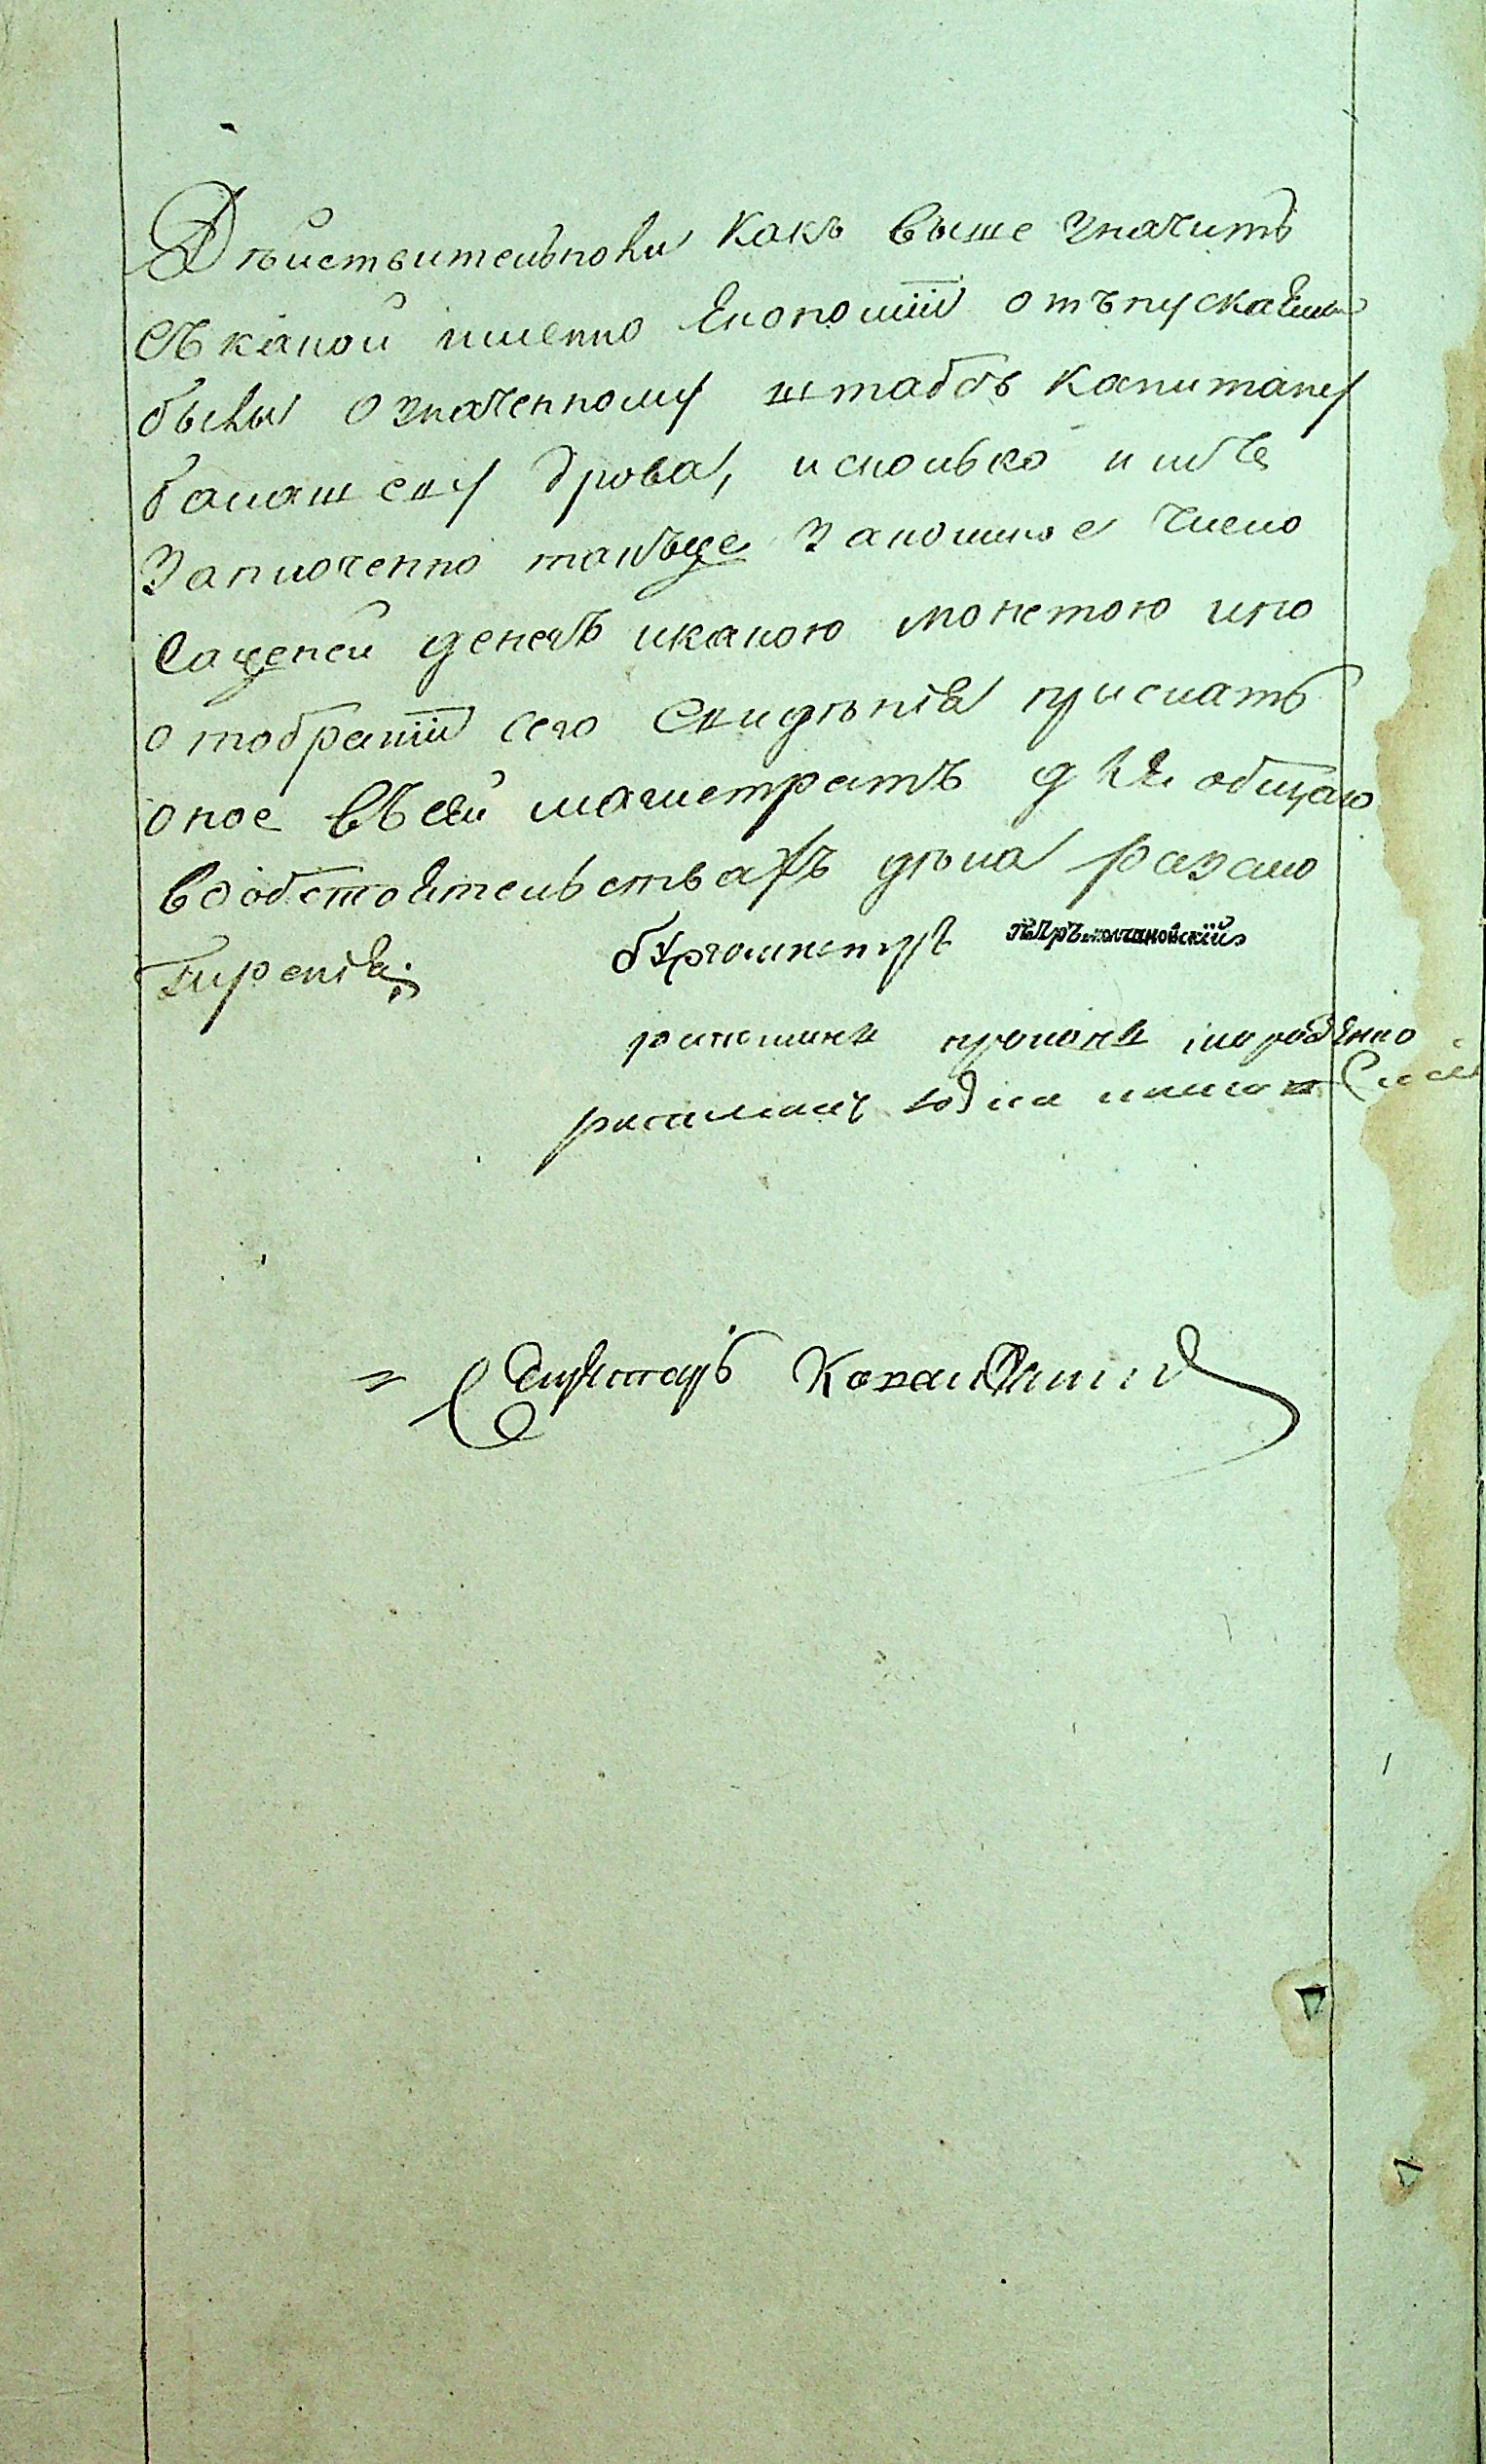 Дѣйствительноли какъ выше значитъ
Съ какой именно Економіи отъпускаемы
были означенному штабсъ Капитану
балашеву дрова, исколько имъ
Заплоченно такъже Законшное Число
Сажней денегъ икакою монетою ипо
отобраніи сего Свидѣнія прислать
оное Въсей магистратъ для общаго
вообстоятельствахъ дѣла разсмо
тренія;
бургомистръ Пѣтръ молчановскій
ратмана
ратманъ
Секретарь